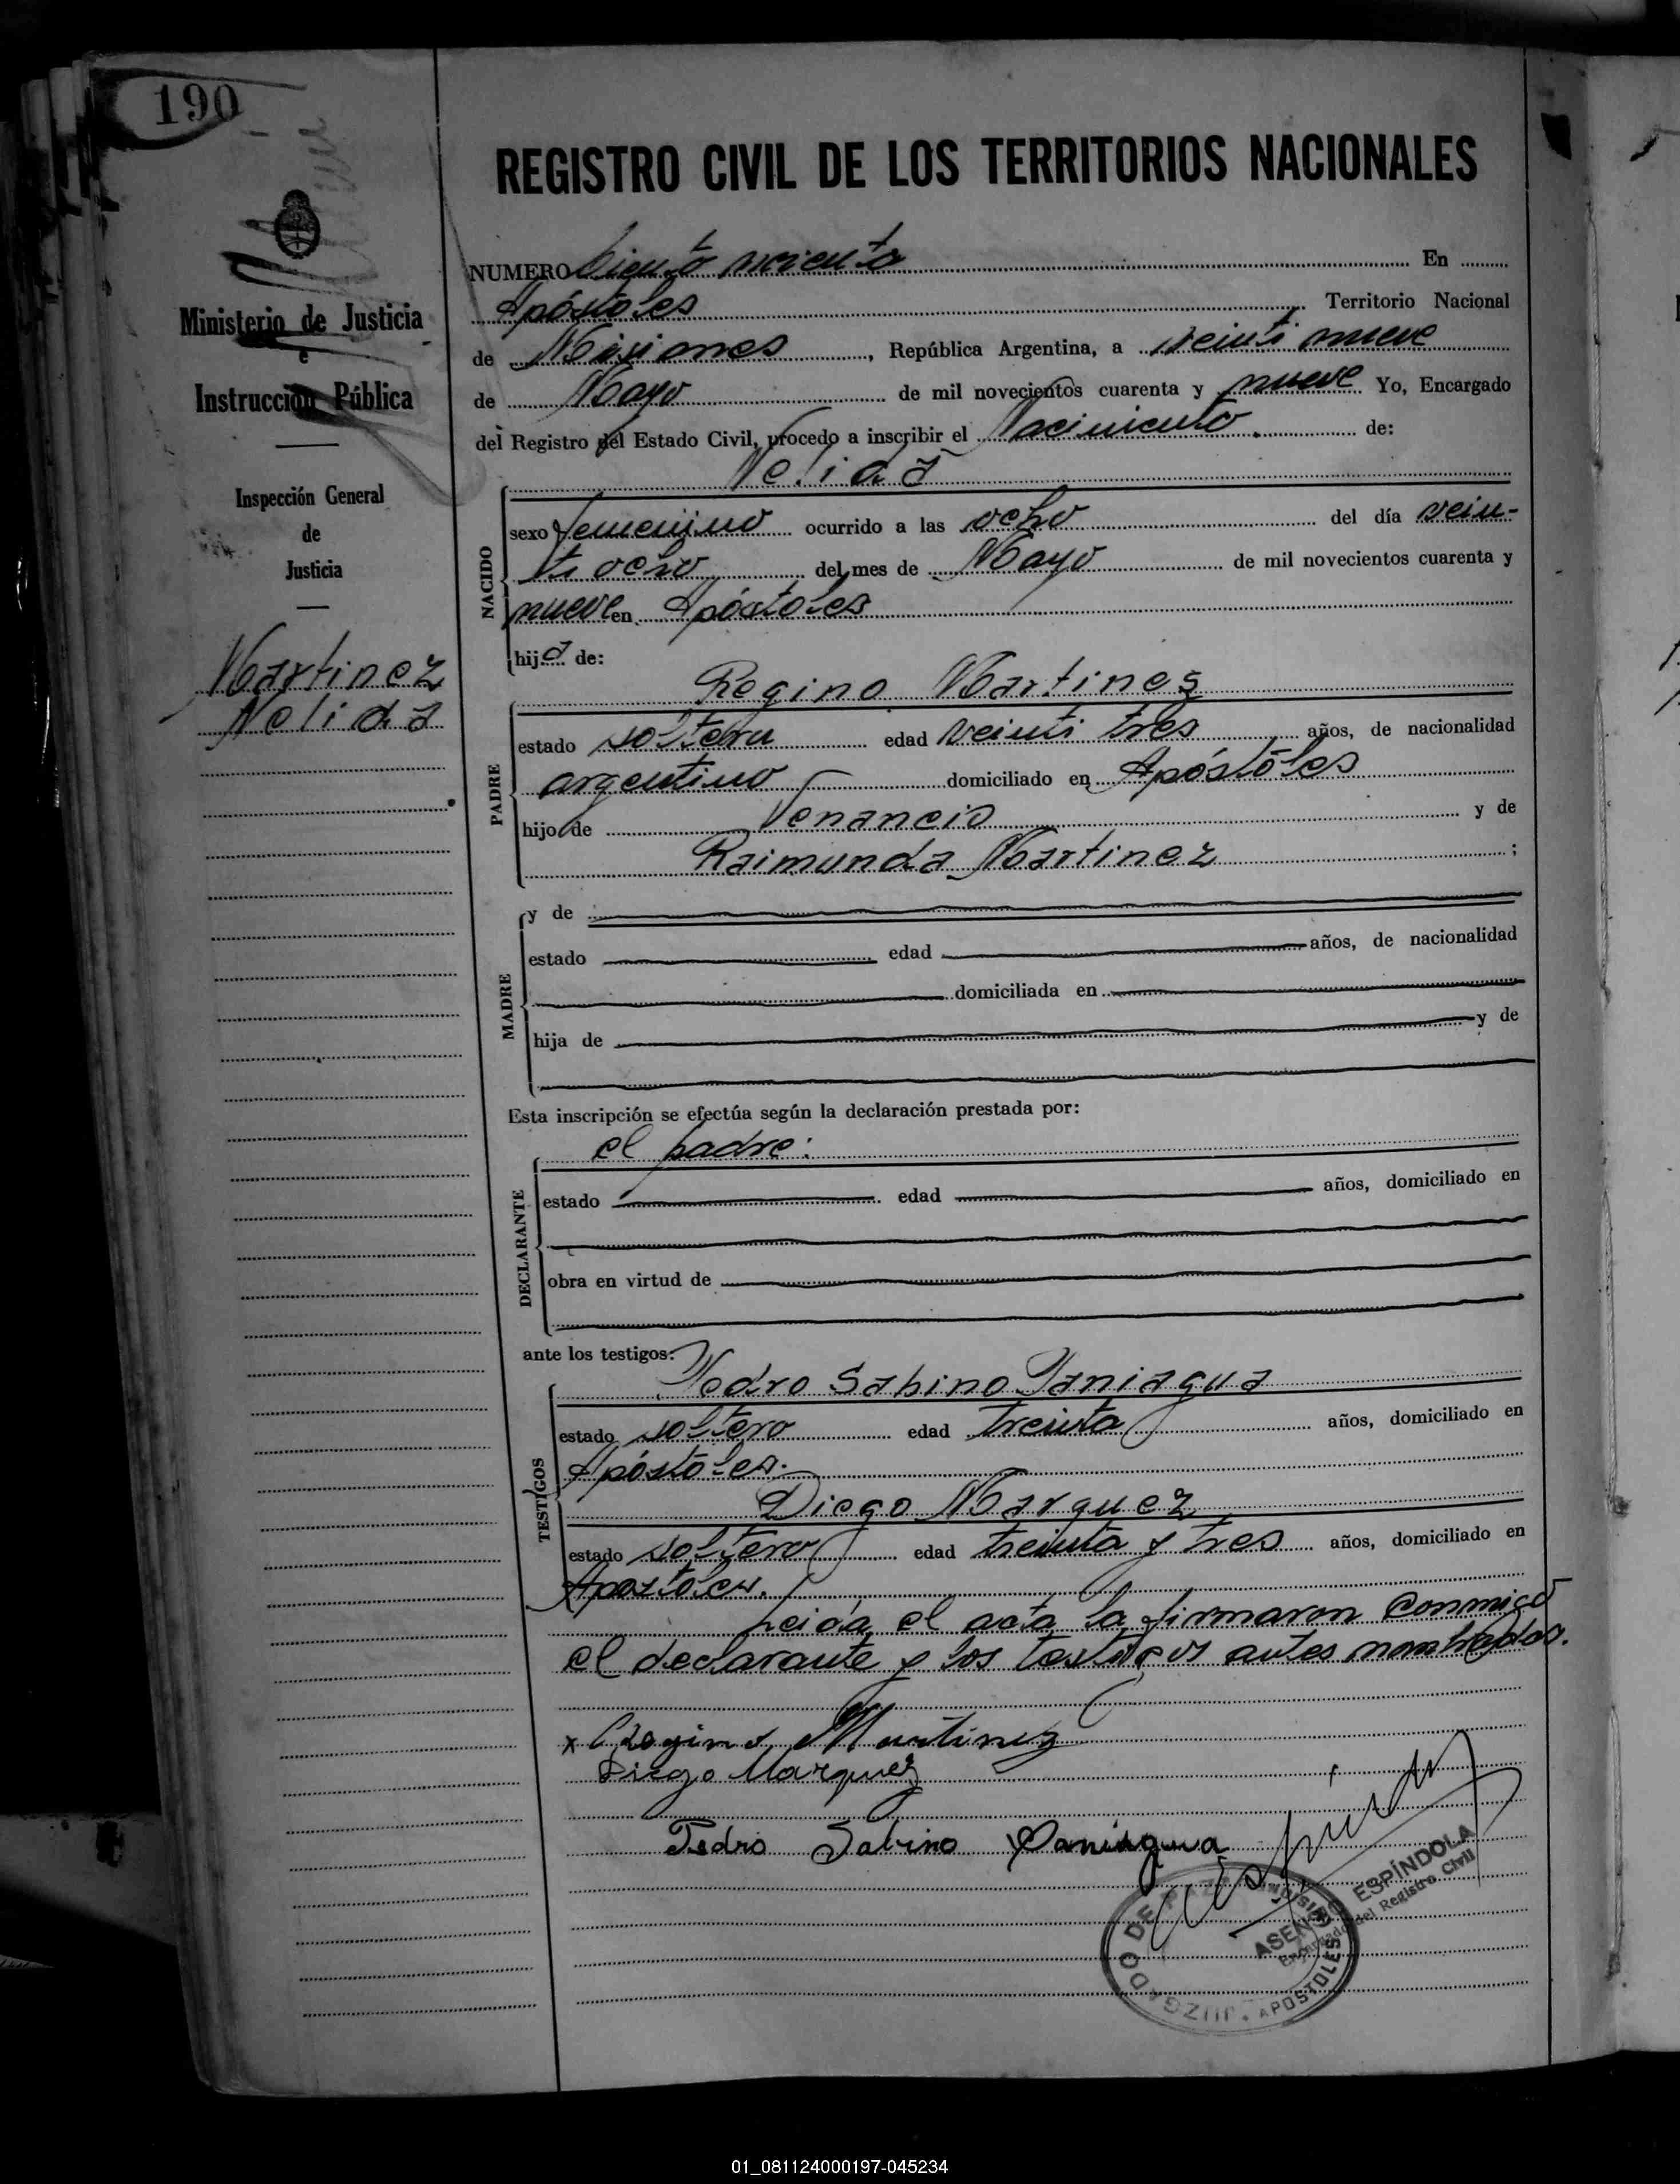 190
REGISTRO CIVIL DE LOS TERRITORIOS NACIONALES
Ministerio de Justicia
e
Instrucción Pública
Inspección General
de
Justicia
Martinez
Nelida
NUMERO Ciento En
Apóstoles Territorio Nacional
de Misiones, República Argentina, a veinti nueve
de Mayo de mil novecientos cuarenta y nueve Yo, Encargado
del Registro del Estado Civil, procedo a inscribir el Nacimiento de:
Nelida
NACIDO
sexo femenino ocurrido a las ocho del día vein-
ti ocho del mes de Mayo de mil novecientos cuarenta y
nueve en Apóstoles
hija de:
Regino Martines
PADRE
estado soltero edad veinti tres años, de nacionalidad
argentino domiciliado en Apóstoles
hijo de Venancio y de
Raimunda Martinez ;
MADRE
y de
estado edad años, de nacionalidad
domiciliada en
hija de y de
Esta inscripción se efectúa según la declaración prestada por:
el padre:
DECLARANTE
estado edad años, domiciliado en
obra en virtud de
ante los testigos:
TESTIGOS
Pedro Sabino Paniagua
estado soltero edad treinta años, domiciliado en
Apóstoles.
Diego Marquez
estado soltero edad treinta y tres años, domiciliado en
Apostoles.
Leida el acta la firmaron conmigo
el declarante y los testigos antes nombrados.
x Regino Martinez
Diego Marquez
Pedro Sabino Paniagua
ESPÍNDOLA
Encargado del Registro Civil
JUZGADO DE PAZ
APOSTOLES
01_081124000197-045234